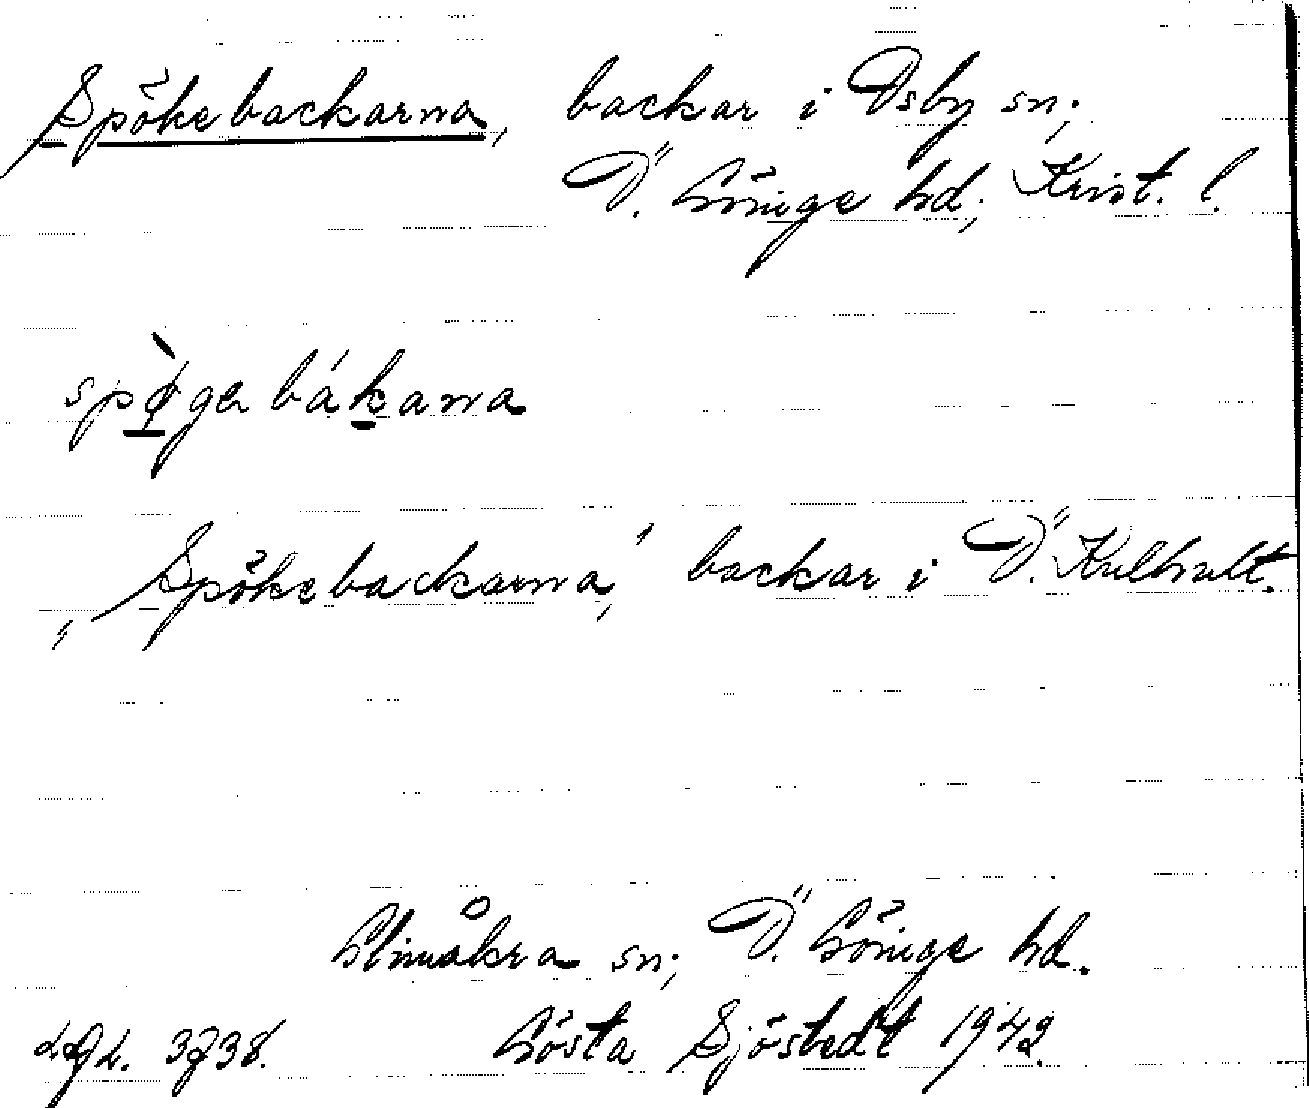 Spökebackarna, backar i Osby sn;
Ö. Göinge hd; Krist. l.
spø̀gəbákana
„Spökebackarna", backar i Ö. Kulhult.
Glimåkra sn; Ö. Göinge hd.
Gösta Sjöstedt 1942.